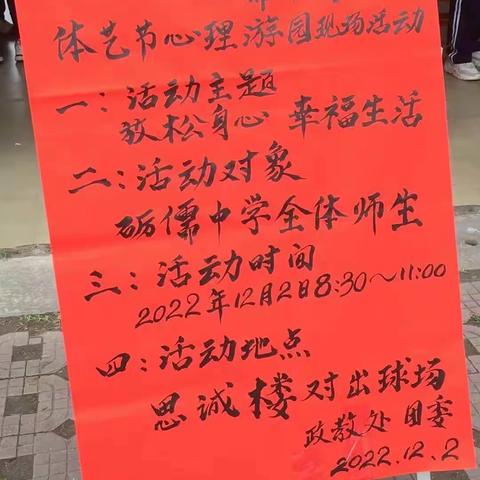 体艺节心理游园现场活动
一：活动主题
放松身心 幸福生活
二：活动对象
砺儒中学全体师生
三：活动时间
2022年12月2日8:30～11:00
四：活动地点
思诚楼对出球场
政教处 团委
2022.12.2